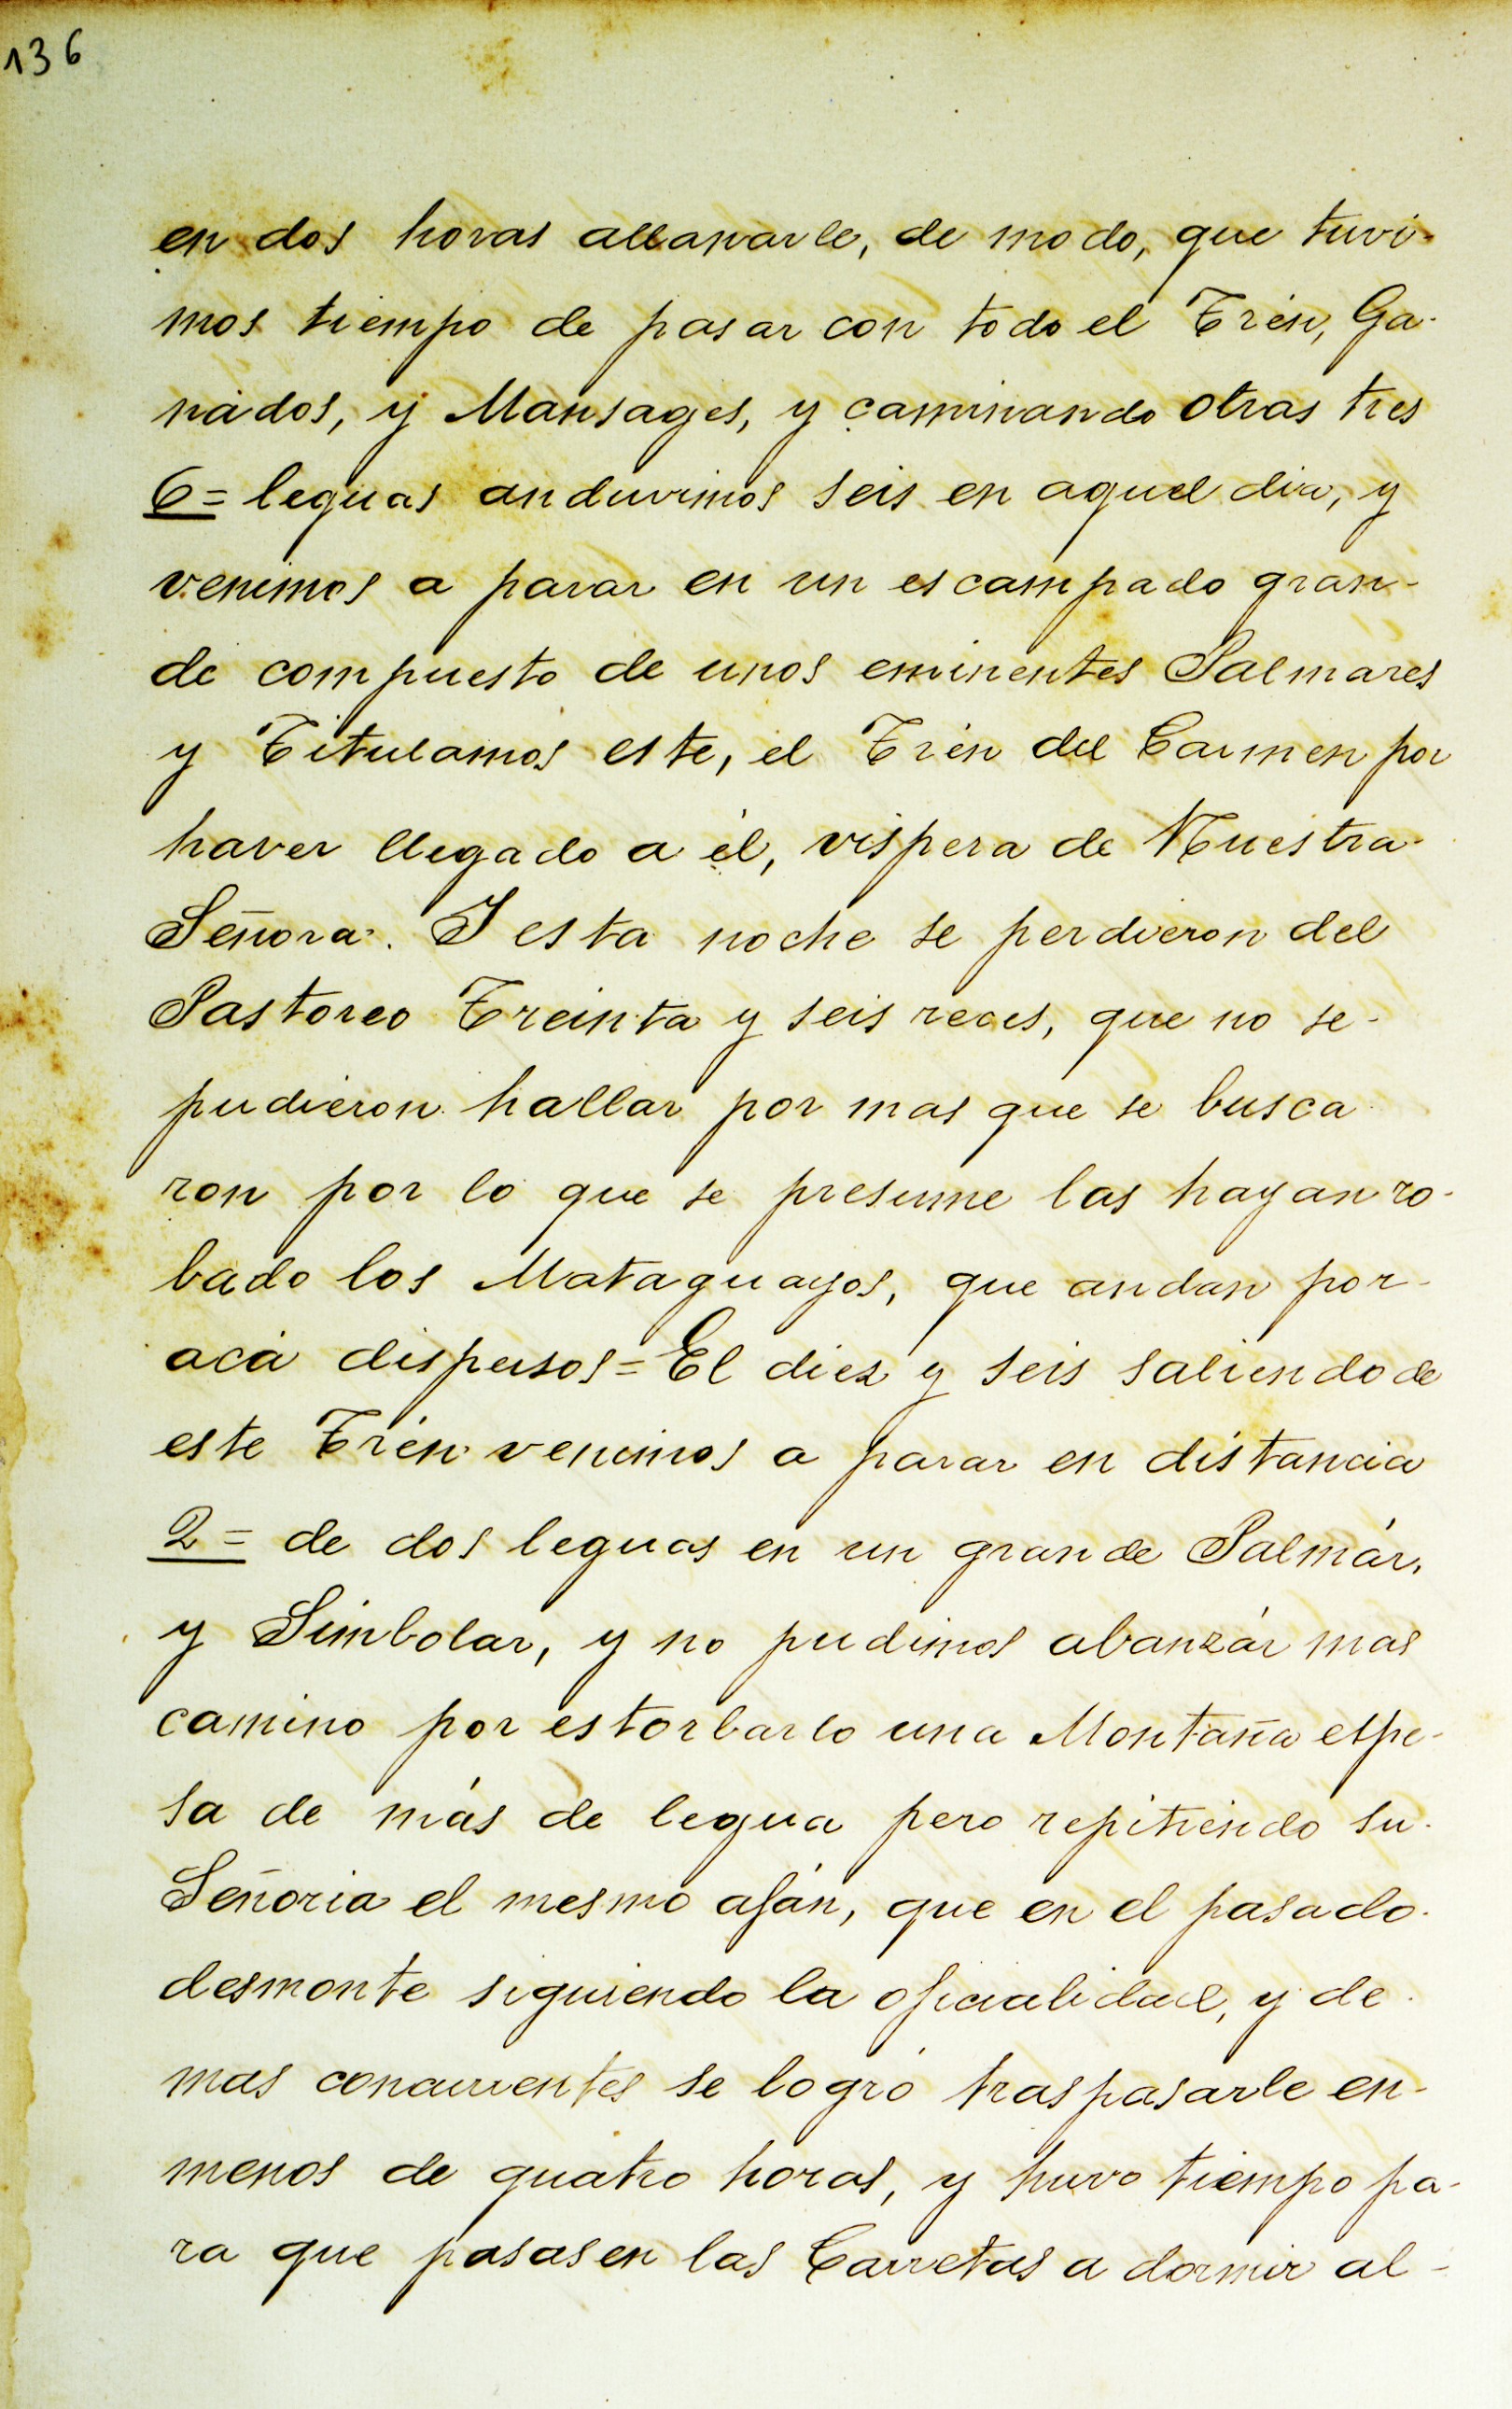 136
en dos horas allanarle, de modo, que tuvi-
mos tiempo de pasar con todo el Trén, Ga-
nados, y Mansages, y caminando otras tres
6= leguas anduvimos seis en aquel dia, y
venimos a parar en un escampado gran-
de compuesto de unos eminentes Palmares
y Titulamos este, el Trén del Carmen por
haver llegado a él, vispera de Nuestra
Señora. I esta noche se perdieron del
Pastoreo Treinta y seis reces, que no se-
pudieron hallar por mas que se busca
ron por lo que se presume las hayan ro-
bado los Mataguayos, que andan por-
acá dispersos= El diez y seis saliendo de
este Trén venimos a parar en distancia
2= de dos leguas en un grande Palmár,
y Simbolar, y no pudimos abanzár mas
camino por estorbarlo una Montaña espe-
sa de más de legua pero repitiendo su-
Señoria el mesmo afán, que en el pasado
desmonte siguiendo la oficialidad, y de-
mas concurrentes se logró traspasarle en-
menos de quatro horas, y huvo tiempo pa-
ra que pasasen las Carretas a dormir al-